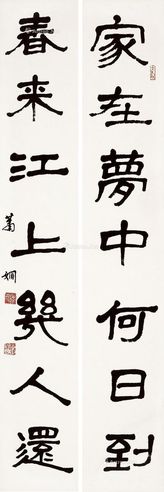 家在夢中何日到
春来江上幾人還
蕭嫻